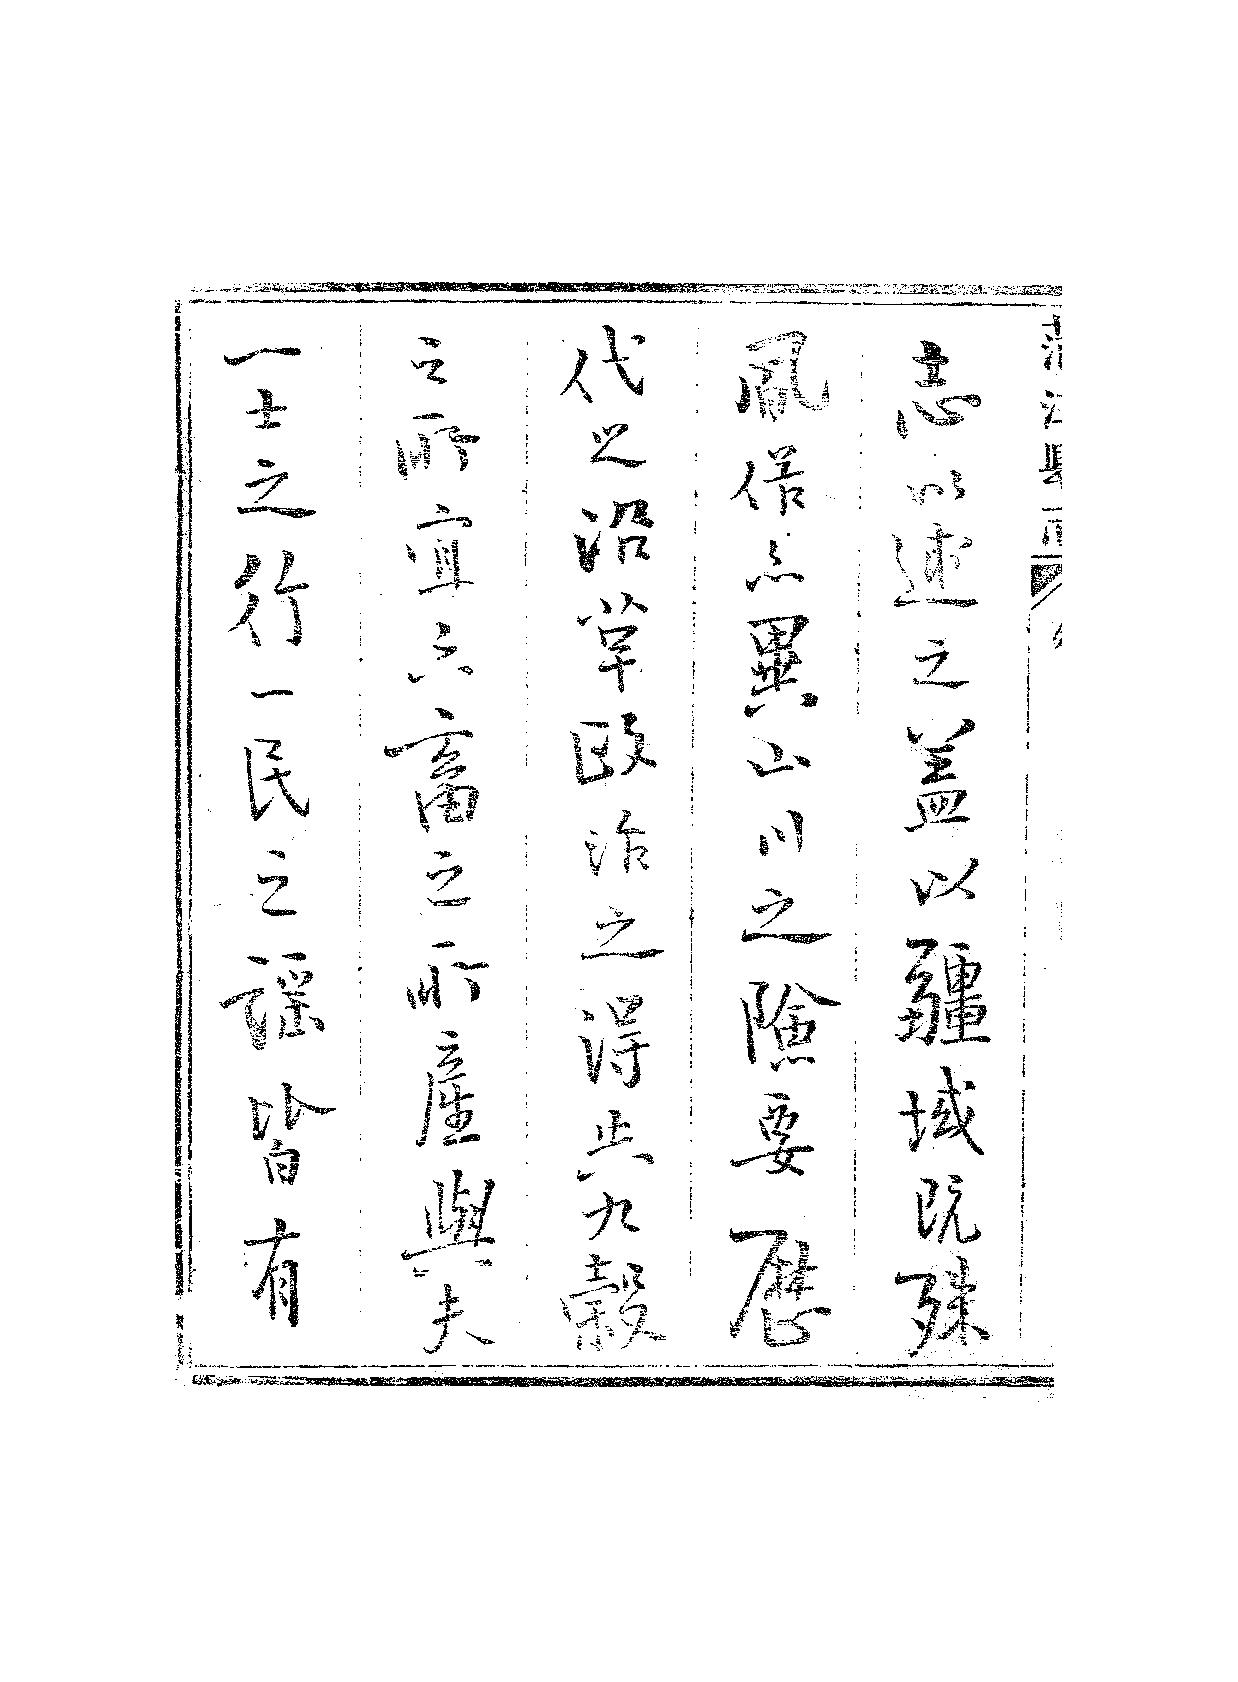 志以述之蓋以疆域既殊
風俗亦異山川之險要歷
代之沿革政治之得失九穀
之所宜六畜之所産與夫
一士之行一民之謡皆有